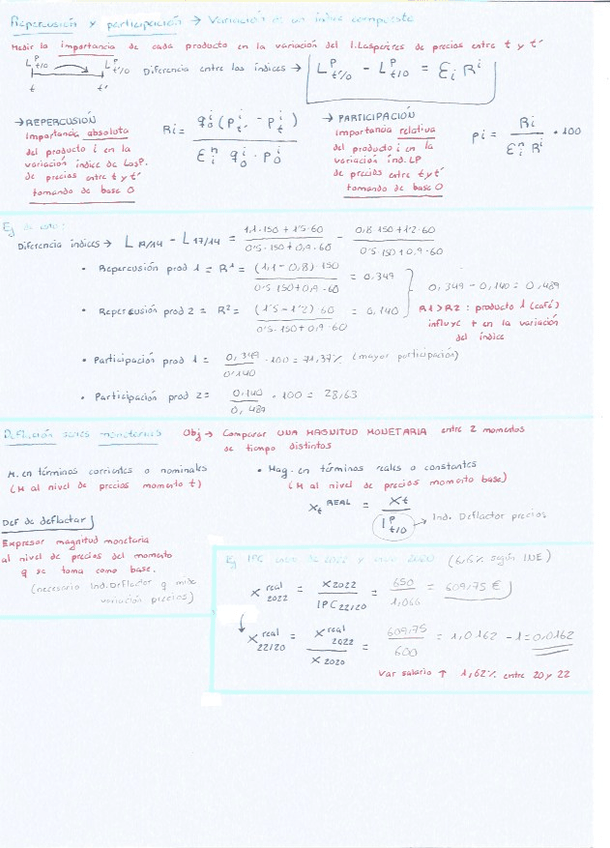 Repercusión y participación → Variación de un índice complejo
Medir la importancia de cada producto en la variación del I.Laspeires de precios entre t y t'
L^P_t/0 → L^P_t'/0 Diferencia entre los índices → L^P_t'/0 - L^P_t/0 = Σi R^i
t t'
→ REPERCUSIÓN
Importancia absoluta
del producto i en la
variación índice de LasP.
de precios entre t y t'
tomando de base 0
Ri = q^i_0 (p^i_t' - p^i_t) / Σ^n_i q^i_0 · p^i_0
→ PARTICIPACIÓN
Importancia relativa
del producto i en la
variación índ. LP
de precios entre t y t'
tomando de base 0
Pi = Ri / Σ^n_i R^i · 100
Ej de esto:
Diferencia índices → L - L 17/14 = 1,1·150 + 1'5·60 / 0'5·150 + 0,9·60 - 0,8·150 + 1'2·60 / 0'5·150 + 0,9·60
• Repercusión prod 1 = R^1 = (1,1 - 0,8)·150 / 0'5·150 + 0,9·60 = 0,349
• Repercusión prod 2 = R^2 = (1'5 - 1'2)·60 / 0'5·150 + 0,9·60 = 0,140
0,349 - 0,140 = 0,489
R1 > R2 : producto 1 (café)
influye + en la variación
del índice
• Participación prod 1 = 0,349 / 0,140 · 100 = 71,37% (mayor participación)
• Participación prod 2 = 0,140 / 0,489 · 100 = 28,63
Deflación series monetarias Obj → Comparar UNA MAGNITUD MONETARIA entre 2 momentos
de tiempo distintos
M. en términos corrientes o nominales
(M al nivel de precios momento t)
• Mag. en términos reales o constantes
(M al nivel de precios momento base)
X_t^REAL = X_t / I^P_t/0 → Ind. Deflactor precios
DEF de deflactar
Expresar magnitud monetaria
al nivel de precios del momento
q se toma como base.
(necesario Ind. Deflactor q mide
variación precios)
Ej IPC 2022 y 2020 (6,6% según INE)
X^real_2022 = X2022 / IPC22/20 = 650 / 1,066 = 609,75 €
X^real_22/20 = X^real_2022 / X2020 = 609,75 / 600 = 1,0162 - 1 = 0,0162
Var salario ↑ 1,62% entre 20 y 22